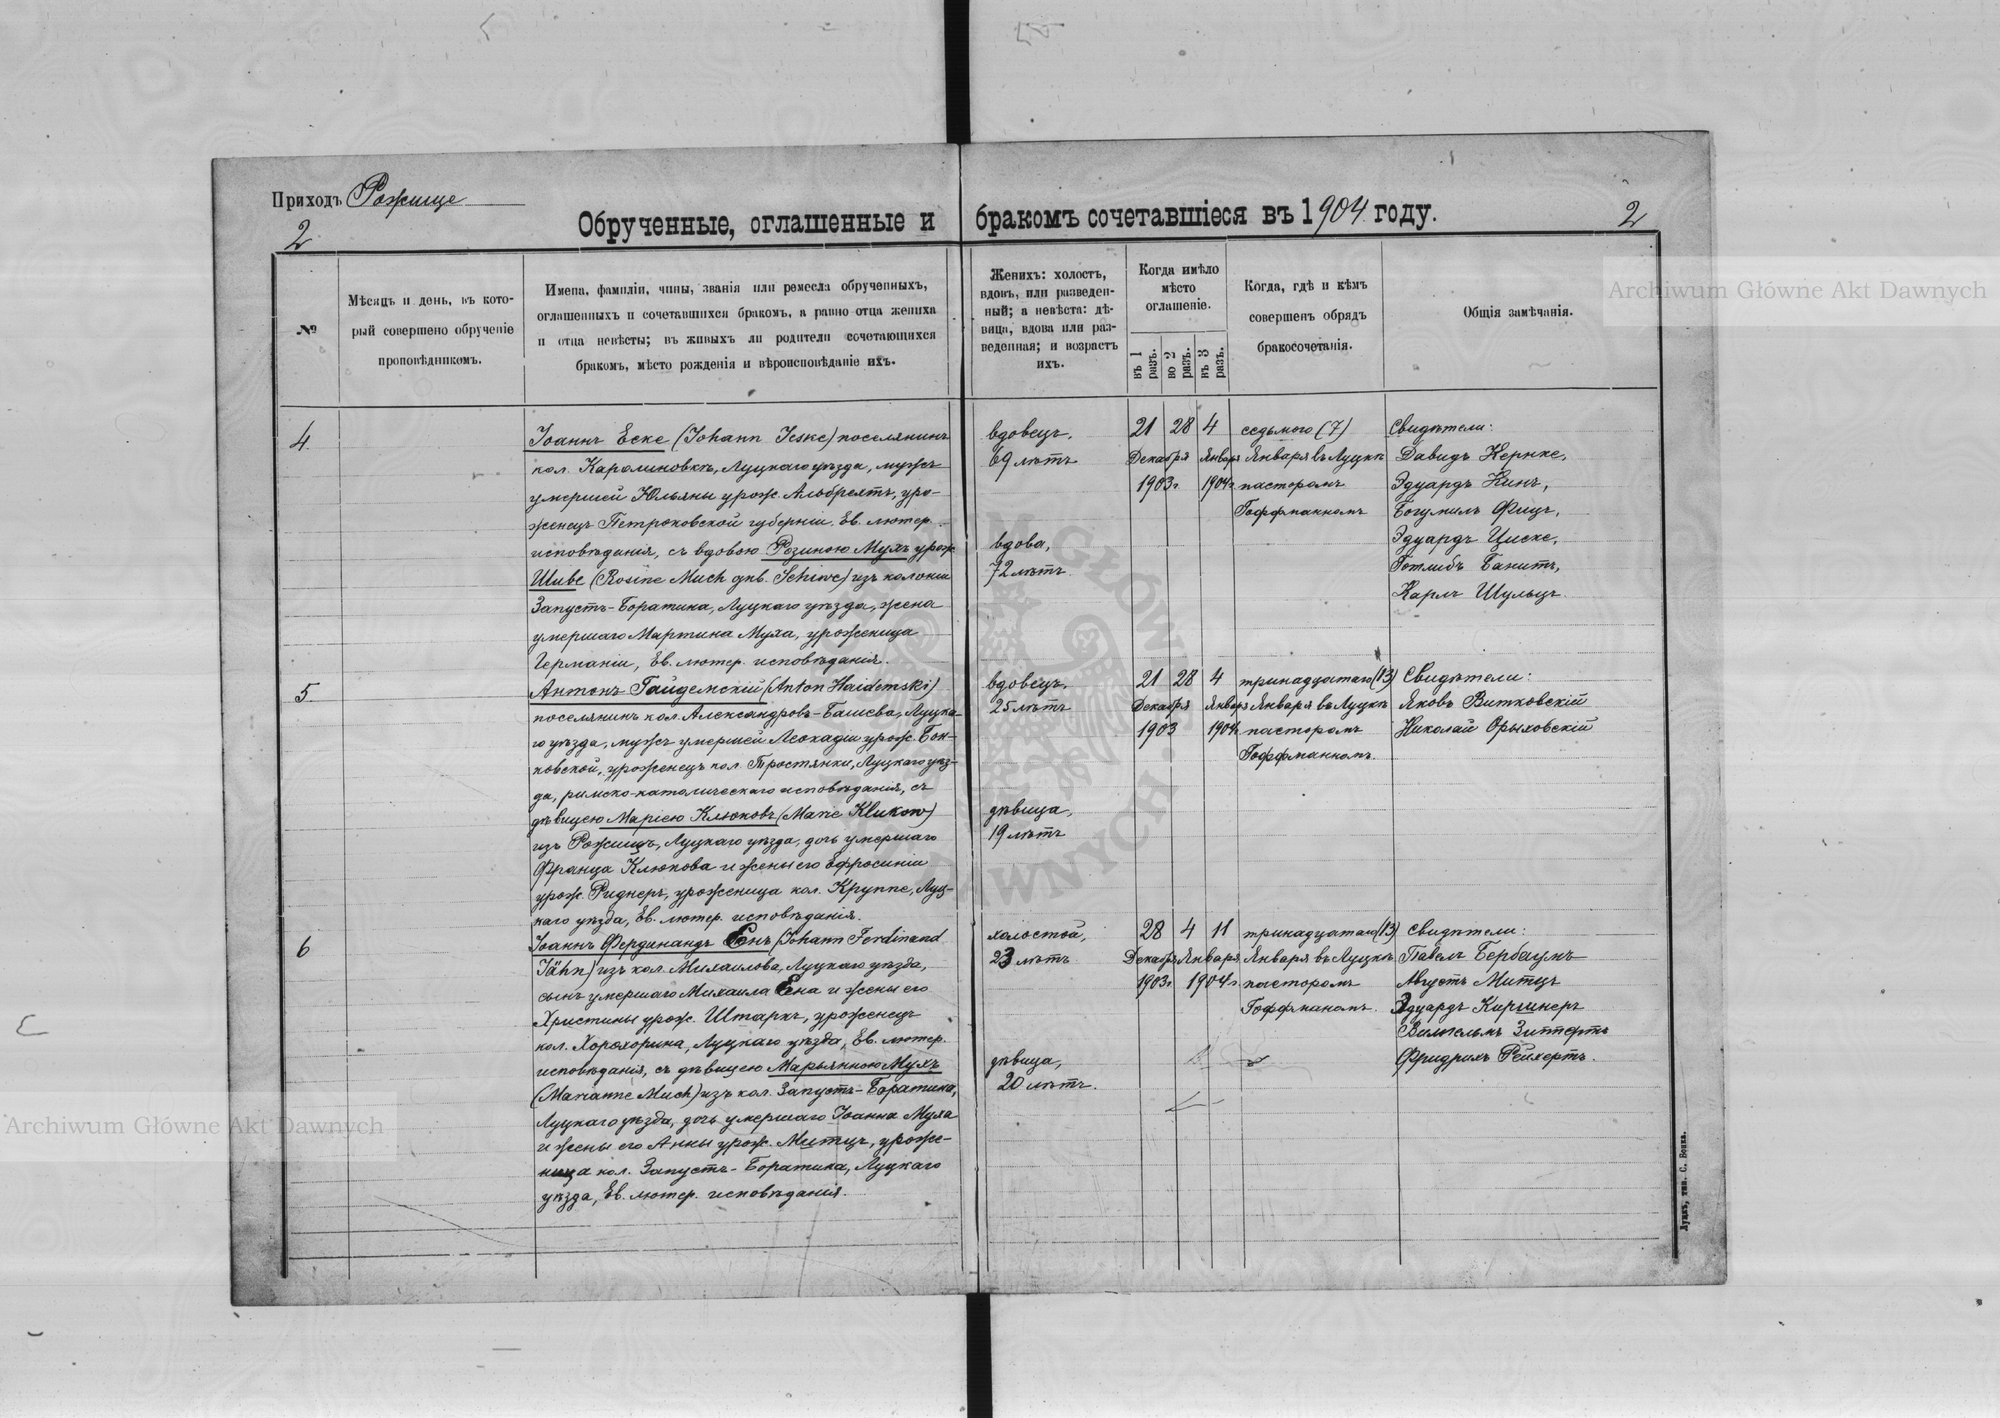 Приходъ Рожище
2
Обрученные, оглашенные и бракомъ сочетавшіеся въ 1904 году.
2
№
Мѣсяцъ и день, въ который совершено обрученіе проповѣдникомъ.
Имена, фамиліи, чины, званія или ремесла обрученныхъ,
оглашенныхъ и сочетавшихся бракомъ, а равно отца жениха
и отца невѣсты; въ живыхъ ли родители сочетающихся
бракомъ, мѣсто рожденія и вѣроисповѣданіе ихъ.
Женихъ: холостъ,
вдовъ, или разведен-
ный; а невѣста: дѣ-
вица, вдова или раз-
веденная; и возрастъ
ихъ.
Когда имѣло
мѣсто
оглашеніе.
въ 1 разъ.
во 2 разъ.
въ 3 разъ.
Когда, гдѣ и кѣмъ
совершенъ обрядъ
бракосочетанія.
Общія замѣчанія.
Archiwum Główne Akt Dawnych
4
Іоаннъ Еске (Johann Jeske) поселянинъ
кол. Каролиновкѣ, Луцкаго уѣзда, мужъ
умершей Юльяны урож. Альбрехтъ, уро-
женецъ Петроковской губерніи. Ев. лютер.
исповѣданія, съ вдовою Розиною Мухъ урож
Шиве (Rosine Much geb. Schiwe) изъ колоніи
Запустъ-Боратина, Луцкаго уѣзда, жена
умершаго Мартина Муха, уроженица
Германіи, Ев. лютер. исповѣданія.
вдовецъ,
69 лѣтъ
вдова,
72 лѣтъ
21 28 4
Декабря Января
1903 г. 1904 г.
седьмого (7)
Января въ Луцкѣ
пасторомъ
Гоффманномъ
Свидѣтели:
Давидъ Кернке,
Эдуардъ Кинъ,
Богумилъ Фицъ,
Эдуардъ Циске,
Готлибъ Банитъ,
Карлъ Шульцъ.
5
Антонъ Гайдемскій (Anton Haidemski)
поселянинъ кол. Александровъ-Башева, Луцка-
го уѣзда, мужъ умершей Леокадіи урож. Бон-
ковской, уроженецъ кол. Тростянки, Луцкаго уѣз-
да, римско-католическаго исповѣданія, съ
дѣвицею Маріею Клюковъ (Marie Klukow)
изъ Рожищъ, Луцкаго уѣзда, дочь умершаго
Франца Клюкова и жены его Ефросиніи
урож. Риднеръ, уроженица кол. Круппе, Луц-
каго уѣзда, Ев. лютер. исповѣданія.
вдовецъ,
25 лѣтъ
дѣвица,
19 лѣтъ
21 28 4
Декабря Января
1903 1904 г.
тринадцатаго (13)
Января въ Луцкѣ
пасторомъ
Гоффманномъ.
Свидѣтели:
Яковъ Витковскій
Николай Орыховскій
6
Іоаннъ Фердинандъ Енъ (Johann Ferdinand
Jähn) изъ кол. Михаилова, Луцкаго уѣзда,
сынъ умершаго Михаила Ена и жены его
Христины урож. Штаркъ, уроженецъ
кол. Хорохорина, Луцкаго уѣзда, Ев. лютер.
исповѣданія, съ дѣвицею Марьянною Мухъ
(Marianne Much) изъ кол. Запустъ-Боратина,
Луцкаго уѣзда, дочь умершаго Іоанна Муха
и жены его Анны урож. Митцъ, уроже-
ница кол. Запустъ-Боратина, Луцкаго
уѣзда, Ев. лютер. исповѣданія.
холостой,
23 лѣтъ
дѣвица,
20 лѣтъ.
28 4 11
Декабря Января
1903 г. 1904 г.
тринадцатаго (13)
Января въ Луцкѣ
пасторомъ
Гоффманомъ.
Свидѣтели:
Павелъ Бербаумъ
Августъ Митцъ
Эдуардъ Киршнеръ
Вильгельмъ Зиттертъ
Фридрихъ Рейхертъ.
Archiwum Główne Akt Dawnych
Луцкъ, тип. С. Бенха.